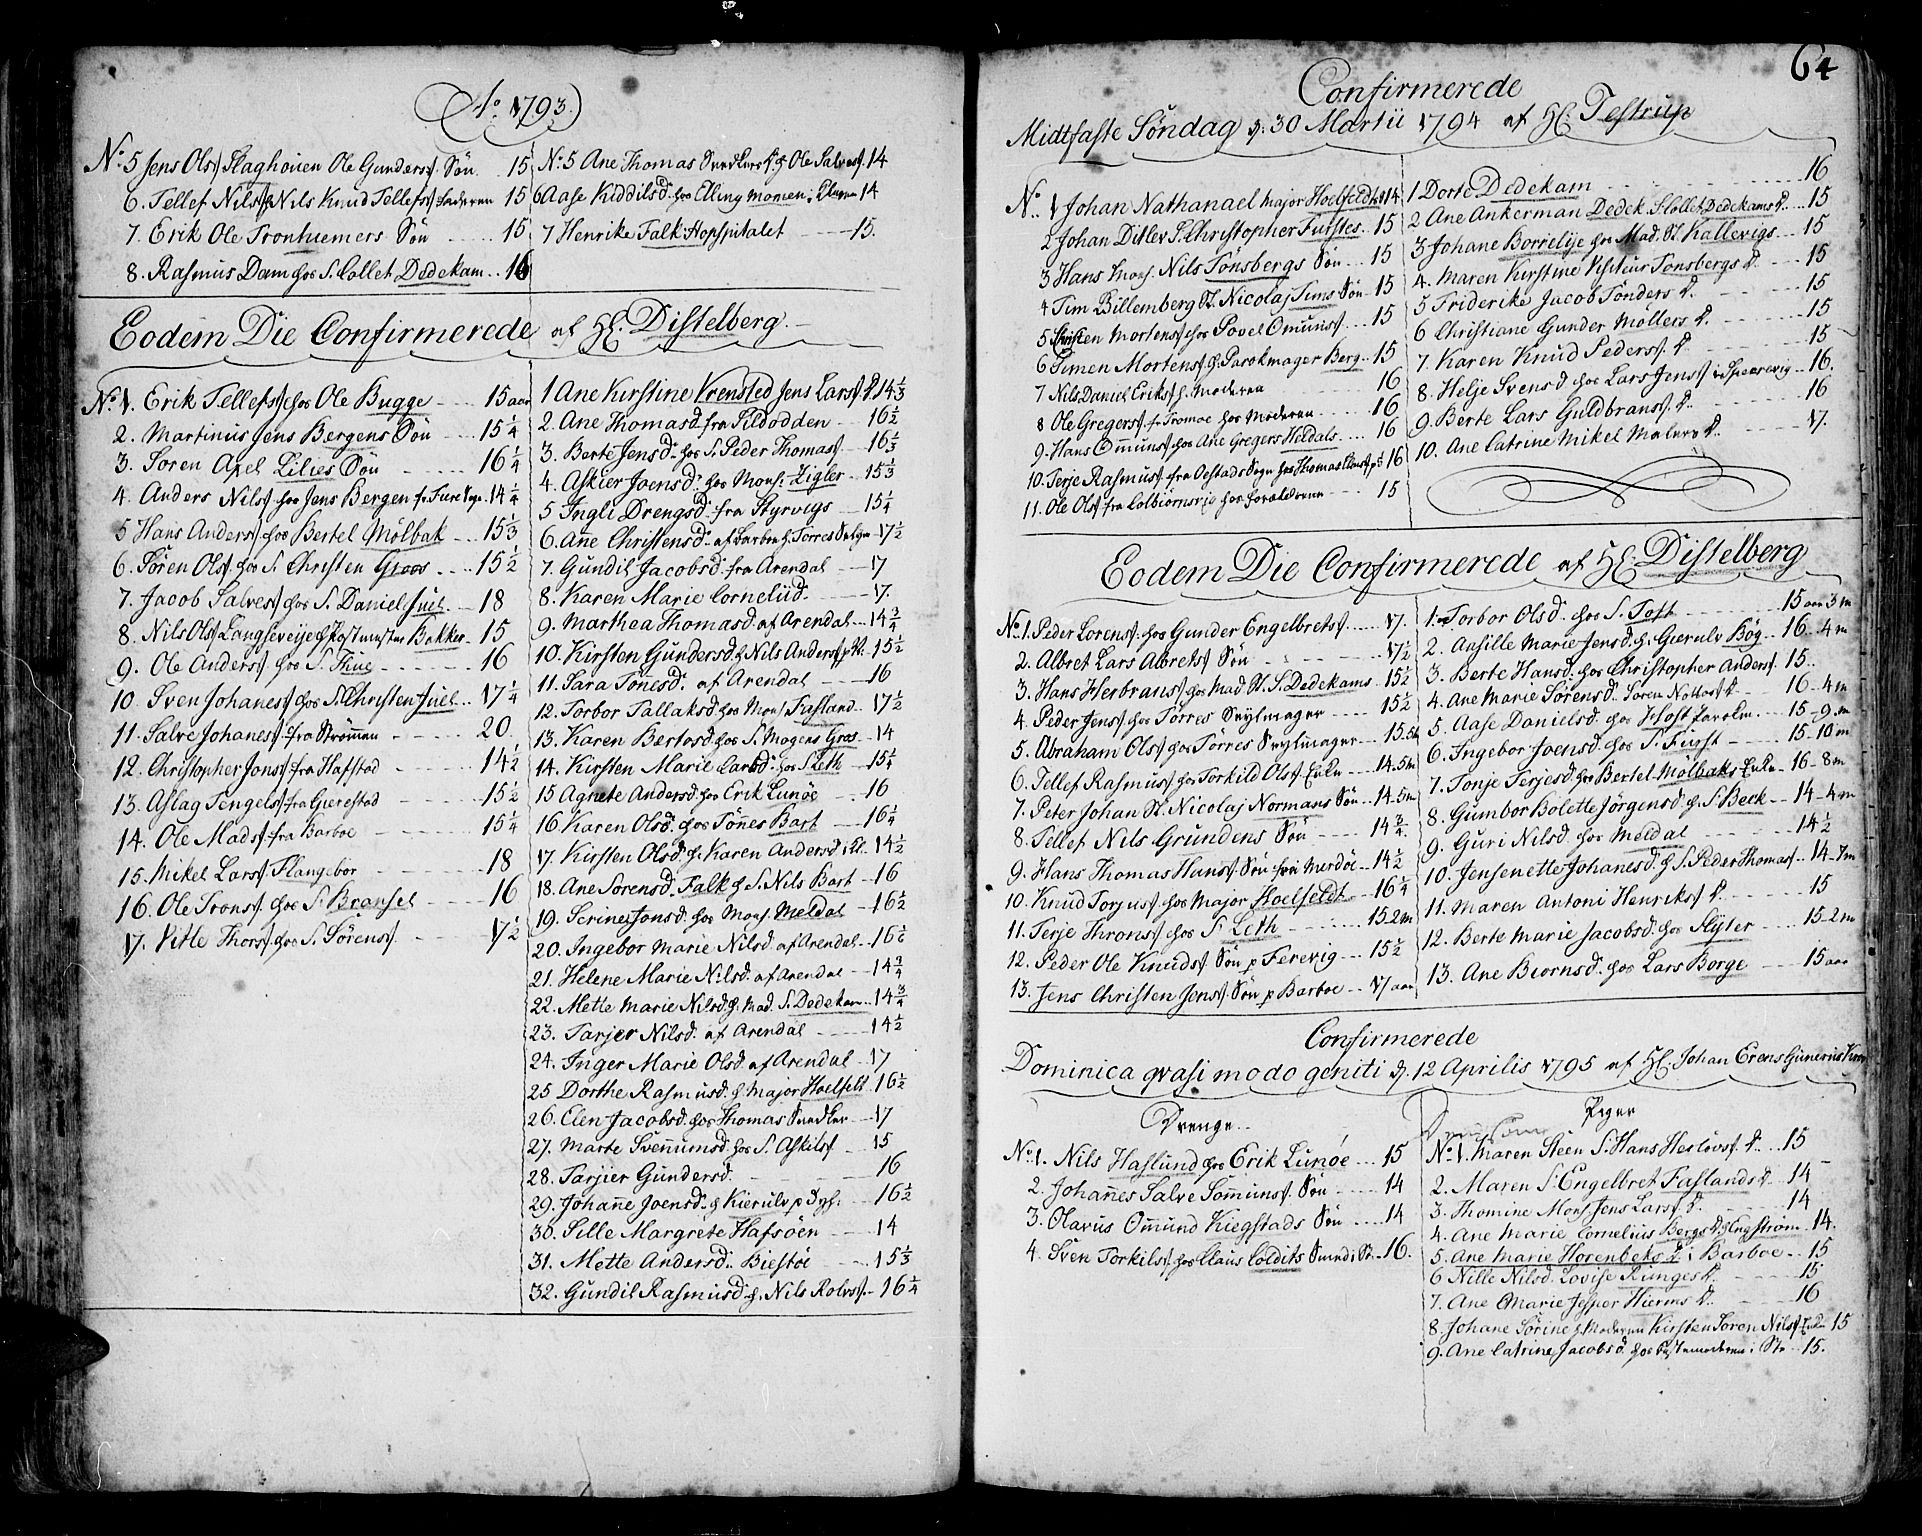 Ao 1793.
No 5 Jens Ols. Slaghouen Ole Gunders. Søn 15
6. Tellef Nils. Nils Knud Tellefs. Faderen 15
7. Erik Ole Tronhiemers Søn 15
8. Rasmus Dam hos S. Collet Dedekam 16
No 5 Ane Thomas Snedkers D. h. Ole Salves. 14
6 Aase Kiddilsd. hos Elling Momen i 14
7 Henrike Falk Hopspitalet 15.
Eodem Die Confirmerede af H. Distelberg.
No 1. Erik Tellefs. hos Ole Bugge 15 aar
2. Martinus Jens Bergens Søn 15 1/4
3. Soren Axel Lilies Søn 16 1/4
4. Anders Nils. hos Jens Bergen fr. Sogn 14 1/4
5 Hans Anders. hos Bertel Mølbak 15 1/3
6. Søren Ols. hos S. Christen Groos 15 1/2
7. Jacob Salves. hos S. Daniel Juel 18
8. Nils Ols. Langseveije h. Postmester Bakker 15
9. Ole Anders. hos S. Thue 16
10. Sven Johanes. hos S. Christen Juel 17 1/4
11. Salve Johanes. fra Strømen 20
12. Christopher Jons. fra Hafstad 14 1/2
13. Aslag Tengels. fra Gierestad 15 1/2
14. Ole Mads. fra Barboe 15 1/4
15. Mikel Lars. Flangebor 18
16. Ole Trons. hos S. Bransel 16
17. Vitte Thors. hos S. Sørens. 17 1/2
1 Ane Kirstine Vrensted Jens Lars. D. 14 1/3
2. Ane Thomasd. fra Fildodden 16 1/2
3. Berte Jensd. hos S. Peder Thomas. 16 1/3
4. Askier Joensd. hos Mons. Zigler 15 1/3
5 Ingli Drengsd. fra Styrvigs 15 1/4
6. Ane Christensd. af Barboe h. Torres 17 1/2
7. Gundil Jacobsd. fra Arendal 17
8. Karen Marie Corneliid. 17.
9. Marthea Thomasd. af Arendal 14 3/4
10. Kirsten Gundersd. h. Nils Anders. 15 1/2
11. Sara Tønesd. af Arendal 16
12. Torbor Tallaksd. hos Mons. Fasland 17 1/2
13. Karen Bertosd. hos S. Mogens Gros 14
14. Kirsten Marie Larsd. hos S. Leth 15 1/4
15 Agnete Andersd. hos Erik Lunøe 16
16. Karen Olsd. hos Tønes Bart 16 1/4
17. Kirsten Olsd. h. Karen Andersd. 14 1/2
18. Ane Sorensd. Falk h. S. Nils Bart 16
19. Serine Jonsd. hos Mons. Meldal 16 1/2
20. Ingebor Marie Nilsd. af Arendal 16 1/6
21. Helene Marie Nilsd. af Arendal 14 3/4
22. Mette Marie Nilsd. h. Mad. S. Dedekam 14 3/4
23. Tarjer Nilsd. af Arendal 14 1/2
24. Inger Marie Olsd. af Arendal 17
25 Dorthe Rasmusd. h. Major Hoelfelt 16 1/2
26. Elen Jacobsd. hos Thomas Snedker 17
27. Marte Svenumsd. hos S. Askils. 15
28. Tarjier Gundersd. 16
29. Johane Joensd. h. Kierulv 16 1/2
30. Sille Margrete Hafsøen 14
31. Mette Andersd. Biestøe 15 1/3
32. Gundil Rasmusd. h. Nils Rolvs. 16 1/4
64
Confirmerede
Midtfaste Søndag d. 30 Martii 1794 af H. Testrup
No 1 Johan Nathanael Major Hoelfeldts 14
2 Johan Ditlev S. Christopher Furstes 15
3 Hans Mons. Nils Tønsbergs Søn 15
4 Tim Billemberg St. Nicolaj Tims Søn 15
5 Christen Mortens. hos Povel Omuns. 15
6 Simen Mortens. h. Parokmager Berg 15
7 Nils Daniel Eriks. h. Moderen 16
8 Ole Gregers. fr. Tromøe hos Moderen 16
9. Hans Omuns. hos Ane Gregers Heldals 16
10. Terje Rasmus. fra Oestads Sogn hos Thomas 16
11. Ole Ols. fra Colbiørnsvig hos Forældrene 15
1 Dorte Dedekam 16
2 Ane Ankerman Dedek. S. Collet Dedekams D. 15
3 Johane Borrelije hos Mad. St. Kallevigs 15
4. Maren Kirstine Visiteur Tonsbergs D. 15
5 Friderike Jacob Tønders D. 15
6 Christiane Gunder Møllers D. 15
7 Karen Knud Peders. D. 15
8. Helje Svensd. hos Lars Jens. i Spærevig 16.
9. Berte Lars Guldbrans. D. 16
10. Ane Catrine Mikel Malers D. 17.
Eodem Die Confirmerede af H. Distelberg
No 1. Peder Lorens. hos Gunder Engelbrets. 17.
2. Albret Lars Albrets. Søn 17 1/2
3. Hans Herbrans. hos Mad. St. S. Dedekams 15 1/2
4. Peder Jens. hos Torres Seylmager 15 1/2
5. Abraham Ols. hos Tørres Seylmager 15. 5m
6. Tellef Rasmus. hos Torkild Ols. Enke 14. 5m
7. Peter Johan St. Nicolaj Normans Søn 14. 5m
8. Tellef Nils Grundens Søn 14 3/4.
9. Hans Thomas Hans. Søn fra Merdøe 14 1/2
10. Knud Torjus. hos Major Hoelfeldt 16 1/4
11. Terje Throns. hos S. Leth 15. 2m
12. Peder Ole Knuds. Søn p Ferevig 15 1/2
13. Jens Christen Jens. Søn p Barboe 17 aar
1. Torbor Olsd. hos S. Toft 15 aar 3 m
2. Aasille Marie Jensd. h. Gierulv Bøg 16. 4 m
3. Berte Hansd. hos Christopher Anders. 15.
4. Ane Marie Sørensd. Soren Nottos D. 16 - 4 m
5. Aase Danielsd. hos 15 - 9. m
6. Ingebor Joensd. hos S. Fürst 15 - 10 m
7. Tonje Terjesd. hos Bertel Mølbaks Enke 16 - 8 m
8. Gumbor Bolette Jörgensd. h. S. Beck 14 - 4 m
9. Guri Nilsd. hos Meldal 14 1/2
10. Jensenette Johanesd. h. S. Peder Thomas. 14 - 7m
11. Maren Antoni Henriks. D. 15
12. Berte Marie Jacobsd. hos Slyter 15 - 2 m
13. Ane Biørnsd. hos Lars Borge 15 aar
Confirmerede
Dominica qvasi modo geniti d. 12 Aprilis 1795 af H. Johan Erens Gunerius
Drenge
No 1. Nils Haslund hos Erik Lunøe 15
2. Johanes Salve Somuns. Søn 14
3. Olavus Omund Kiegstads Søn 14
4. Sven Torkils. hos Claus Coldits 16.
Piger
No 1. Maren Steen S. Hans Herlovs. D. 15
2. Maren S. Engelbret Faslands D. 14
3. Thomine Mons. Jens Lars. D. 14
4. Ane Marie Cornelius Bergs D. h. Engstrøm 14.
5. Ane Marie Horenbeks D. i Barboe 15
6 Nille Nilsd. Lovise Runges D. 15
7. Ane Marie Jesper Hierms D. 16
8. Johane Sørine h. Moderen Kirsten Soren Nils. Enke 15
9. Ane Catrine Jacobsd. hos 15.